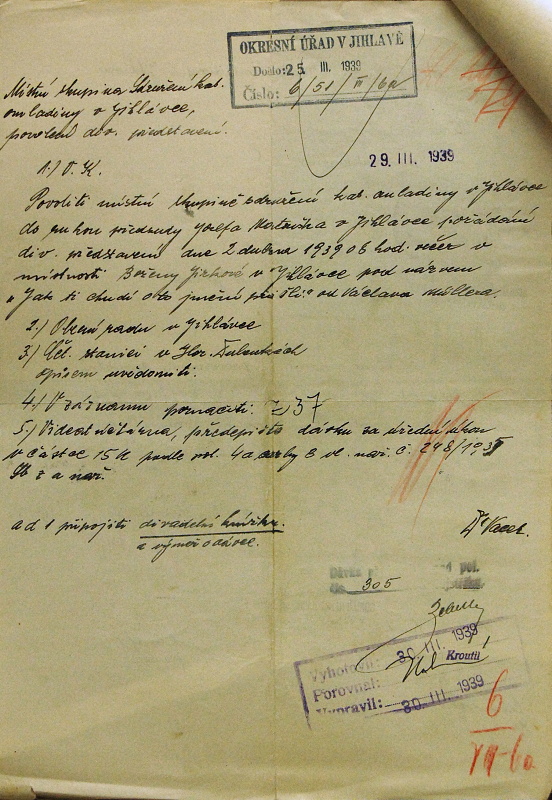 OKRESNÍ ÚŘAD V JIHLAVĚ
Došlo: 25 III. 1939
Číslo: 6/51/
Místní skupina Sdružení kat.
omladiny v Jihlávce,
povolení div. představení.
29. III. 1939
1./ V. K.
Povoliti místní skupině sdružení kat. omladiny v Jihlávce
do rukou předsedy Josefa v Jihlávce pořádání
div. představení dne 2 dubna 1939 o 6 hod. večer v
místnosti Boženy Jirkové v Jihlávce pod názvem
"Jak ti chudí o to jmění přišli" od Václava Müllera.
2./ Obecní radu v Jihlávce
3./ Čet. stanici v Hor. Dubenkách
opisem uvědomiti.
4./ V záznamu poznačiti. 37
5./ předepište dávku za úřední úkon
v částce 15 K podle pol. 4 vl. nař. č. 248/
Sb z a nař.
ad 1 připojiti divadelní knížku.
a výměr o dávce.
Dr
305
Vyhotovil: 30 III. 1939
Porovnal: Kroutil
Vypravil: 30. III. 1939
6